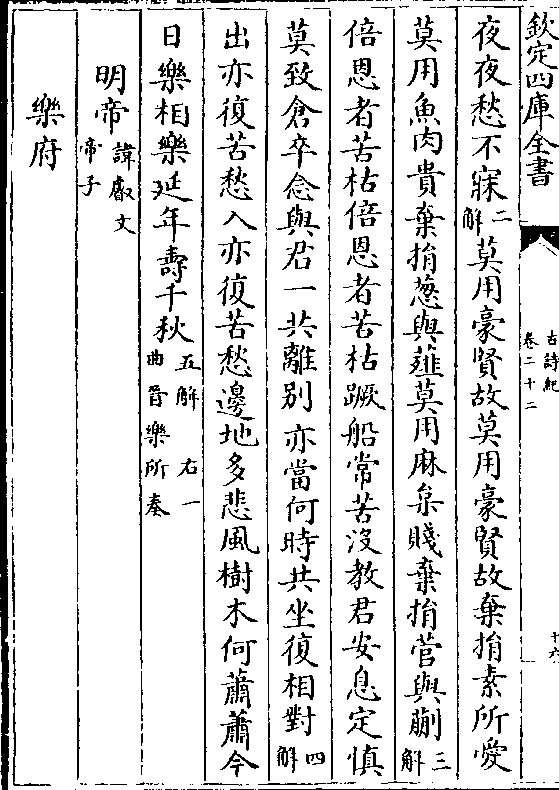 欽定四庫全書
古詩紀
卷二十二
十六
夜夜愁不寐二解莫用豪賢故莫用豪賢故棄捐素所愛
莫用魚肉貴棄捐葱與薤莫用麻枲賤棄捐菅與蒯三解
倍恩者苦枯倍恩者苦枯蹶船常苦没教君安息定慎
莫致倉卒念與君一共離别亦當何時共坐復相對四解
出亦復苦愁入亦復苦愁邊地多悲風樹木何蕭蕭今
日樂相樂延年壽千秋五解右一曲晉樂所奏
明帝諱叡文帝子
樂府